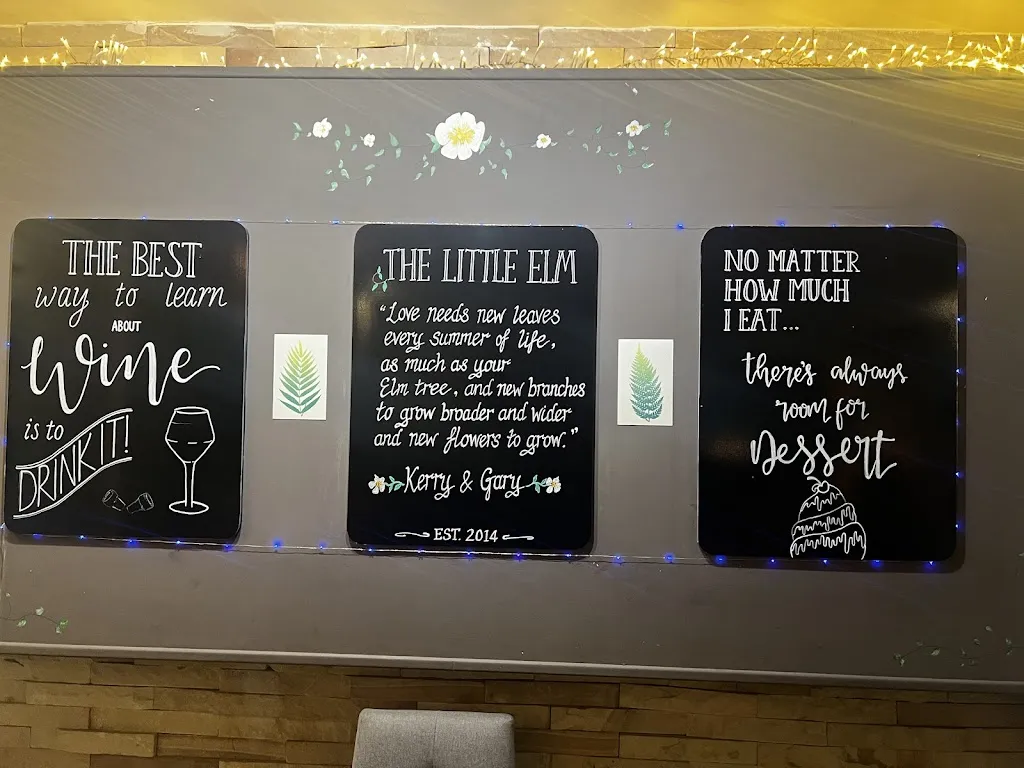 THE BEST
way to learn
ABOUT
Wine
is to
DRINK IT!
THE LITTLE ELM
"Love needs new leaves
every summer of life,
as much as your
Elm tree, and new branches
to grow broader and wider
and new flowers to grow."
Kerry & Gary
EST. 2014
NO MATTER
HOW MUCH
I EAT...
there's always
room for
Dessert